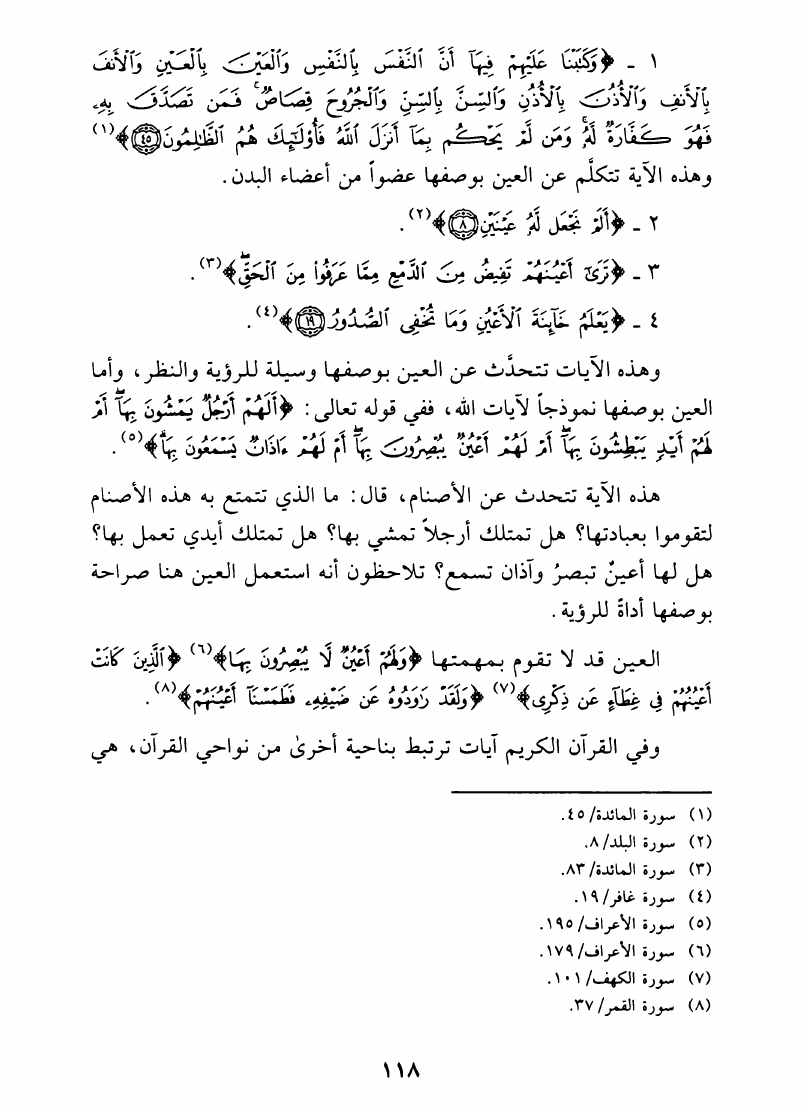 ١ - ﴿وَكَتَبْنَا عَلَيْهِمْ فِيهَآ أَنَّ النَّفْسَ بِالنَّفْسِ وَالْعَيْنَ بِالْعَيْنِ وَالْأَنفَ
بِالْأَنفِ وَالْأُذُنَ بِالْأُذُنِ وَالسِّنَّ بِالسِّنِّ وَالْجُرُوحَ قِصَاصٌ ۚ فَمَن تَصَدَّقَ بِهِۦ
فَهُوَ كَفَّارَةٌ لَّهُۥ ۚ وَمَن لَّمْ يَحْكُم بِمَآ أَنزَلَ اللَّهُ فَأُوْلَـٰٓئِكَ هُمُ الظَّالِمُونَ ٤٥﴾(١)
وهذه الآية تتكلَّم عن العين بوصفها عضواً من أعضاء البدن.
٢ - ﴿أَلَمْ نَجْعَل لَّهُۥ عَيْنَيْنِ ٨﴾(٢).
٣ - ﴿تَرَىٰٓ أَعْيُنَهُمْ تَفِيضُ مِنَ الدَّمْعِ مِمَّا عَرَفُواْ مِنَ الْحَقِّ ۖ﴾(٣).
٤ - ﴿يَعْلَمُ خَآئِنَةَ الْأَعْيُنِ وَمَا تُخْفِى الصُّدُورُ ١٩﴾(٤).
وهذه الآيات تتحدَّث عن العين بوصفها وسيلة للرؤية والنظر، وأما
العين بوصفها نموذجاً لآيات الله، ففي قوله تعالى: ﴿أَلَهُمْ أَرْجُلٌ يَمْشُونَ بِهَآ ۖ أَمْ
لَهُمْ أَيْدٍ يَبْطِشُونَ بِهَآ ۖ أَمْ لَهُمْ أَعْيُنٌ يُبْصِرُونَ بِهَآ ۖ أَمْ لَهُمْ ءَاذَانٌ يَسْمَعُونَ بِهَا ۗ﴾(٥).
هذه الآية تتحدث عن الأصنام، قال: ما الذي تتمتع به هذه الأصنام
لتقوموا بعبادتها؟ هل تمتلك أرجلاً تمشي بها؟ هل تمتلك أيدي تعمل بها؟
هل لها أعينٌ تبصرُ وآذان تسمع؟ تلاحظون أنه استعمل العين هنا صراحة
بوصفها أداةً للرؤية.
العين قد لا تقوم بمهمتها ﴿وَلَهُمْ أَعْيُنٌ لَّا يُبْصِرُونَ بِهَا﴾(٦) ﴿الَّذِينَ كَانَتْ
أَعْيُنُهُمْ فِى غِطَآءٍ عَن ذِكْرِى﴾(٧) ﴿وَلَقَدْ رَاوَدُوهُ عَن ضَيْفِهِۦ فَطَمَسْنَآ أَعْيُنَهُمْ﴾(٨).
وفي القرآن الكريم آيات ترتبط بناحية أخرىٰ من نواحي القرآن، هي
(١) سورة المائدة/٤٥.
(٢) سورة البلد/٨.
(٣) سورة المائدة/٨٣.
(٤) سورة غافر/١٩.
(٥) سورة الأعراف/١٩٥.
(٦) سورة الأعراف/١٧٩.
(٧) سورة الكهف/١٠١.
(٨) سورة القمر/٣٧.
١١٨